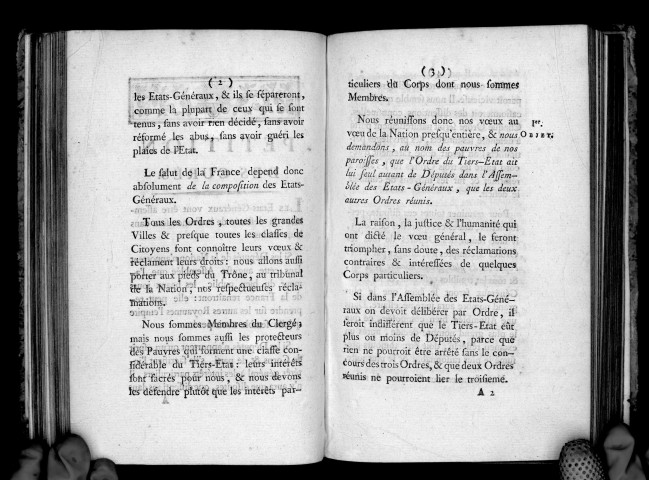 ( 2 )
les Etats-Généraux, & ils se sépareront,
comme la plupart de ceux qui se sont
tenus, sans avoir rien décidé, sans avoir
réformé les abus, sans avoir guéri les
plaies de l'Etat.
Le salut de la France dépend donc
absolument de la composition des Etats-
Généraux.
Tous les Ordres, toutes les grandes
Villes & presque toutes les classes de
Citoyens font connoître leurs vœux &
réclament leurs droits : nous allons aussi
porter aux pieds du Trône, au tribunal
de la Nation, nos respectueuses récla-
mations.
Nous sommes Membres du Clergé;
mais nous sommes aussi les protecteurs
des Pauvres qui forment une classe con-
sidérable du Tiers-Etat : leurs intérêts
sont sacrés pour nous, & nous devons
les défendre plutôt que les intérêts par-
( 3 )
ticuliers du Corps dont nous sommes
Membres.
Nous réunissons donc nos vœux au
vœu de la Nation presqu'entière, & nous
demandons, au nom des pauvres de nos
paroisses, que l'Ordre du Tiers-Etat ait
lui seul autant de Députés dans l'Assem-
blée des Etats-Généraux, que les deux
autres Ordres réunis.
Ier.
OBJET.
La raison, la justice & l'humanité qui
ont dicté le vœu général, le feront
triompher, sans doute, des réclamations
contraires & intéressées de quelques
Corps particuliers.
Si dans l'Assemblée des Etats-Géné-
raux on devoit délibérer par Ordre, il
seroit indifférent que le Tiers-Etat eût
plus ou moins de Députés, parce que
rien ne pourroit être arrêté sans le con-
cours des trois Ordres, & que deux Ordres
réunis ne pourroient lier le troisieme.
A 2